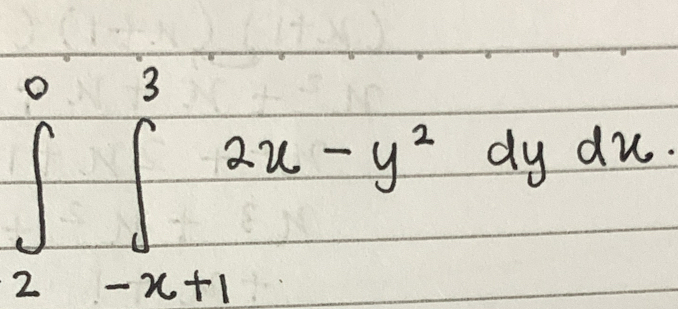 ∫_{-2}^{0} ∫_{-x+1}^{3} 2x - y² dy dx.